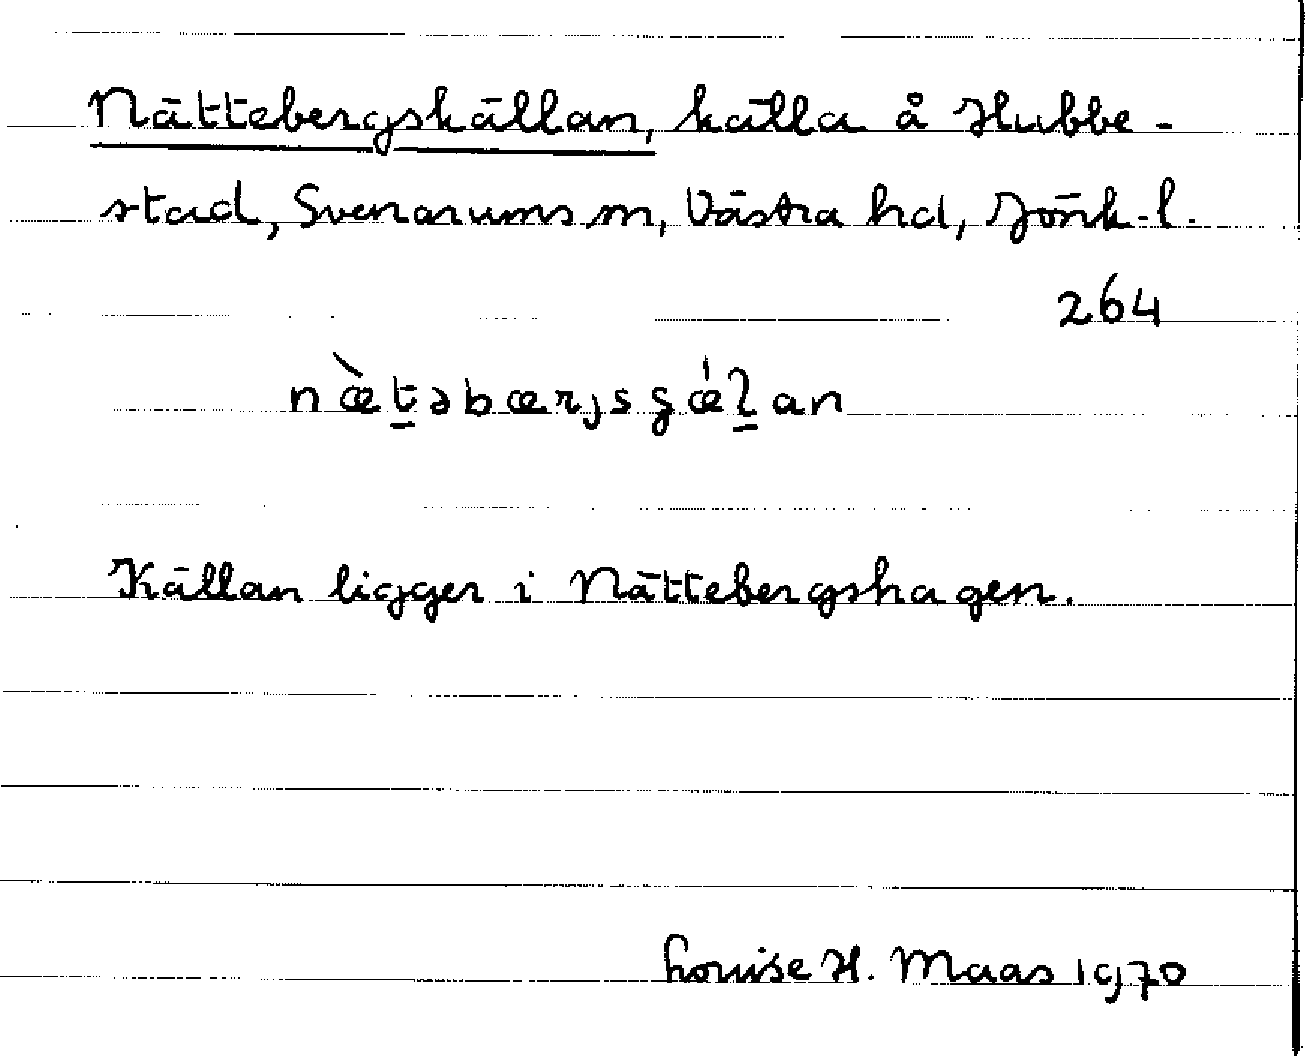 Nättebergskällan, källa å Hubbe-
stad, Svenarums sn, Västra hd, Jönk. l.
264
næ̀t̠əbærjsgǽl̠an
Källan ligger i Nättebergshagen.
Louise H. Maas 1970